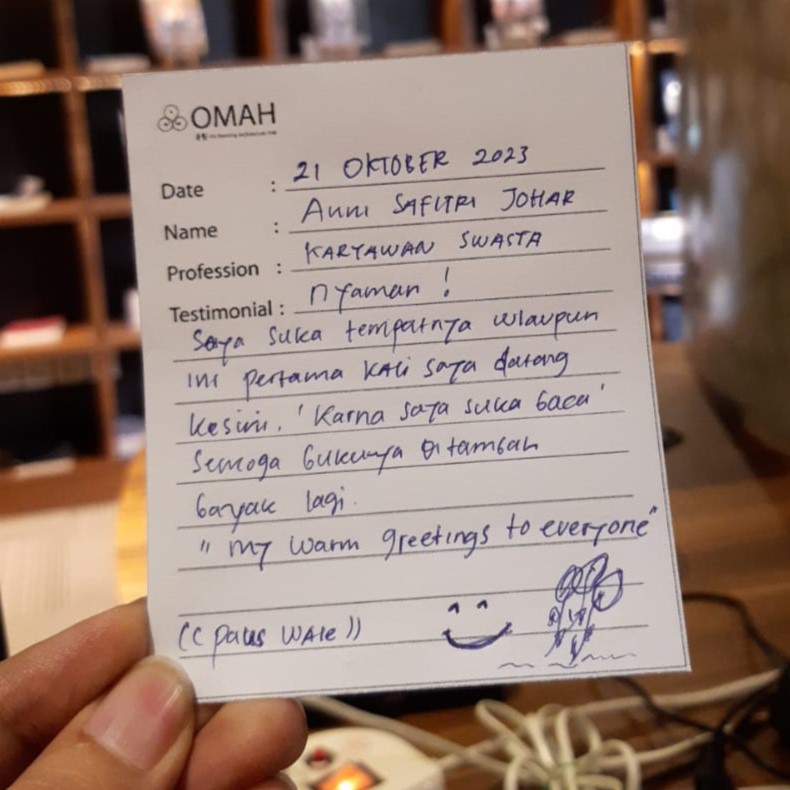 OMAH
Date : 21 OKTOBER 2023
Name : Anni SAFITRI JOHAR
Profession : KARYAWAN SWASTA
Testimonial : nyaman !
Saya suka tempatnya wlaupun
ini pertama kali saya datang
kesini. 'Karna saya suka baca'
Semoga bukunya ditambah
banyak lagi.
" my warm greetings to everyone"